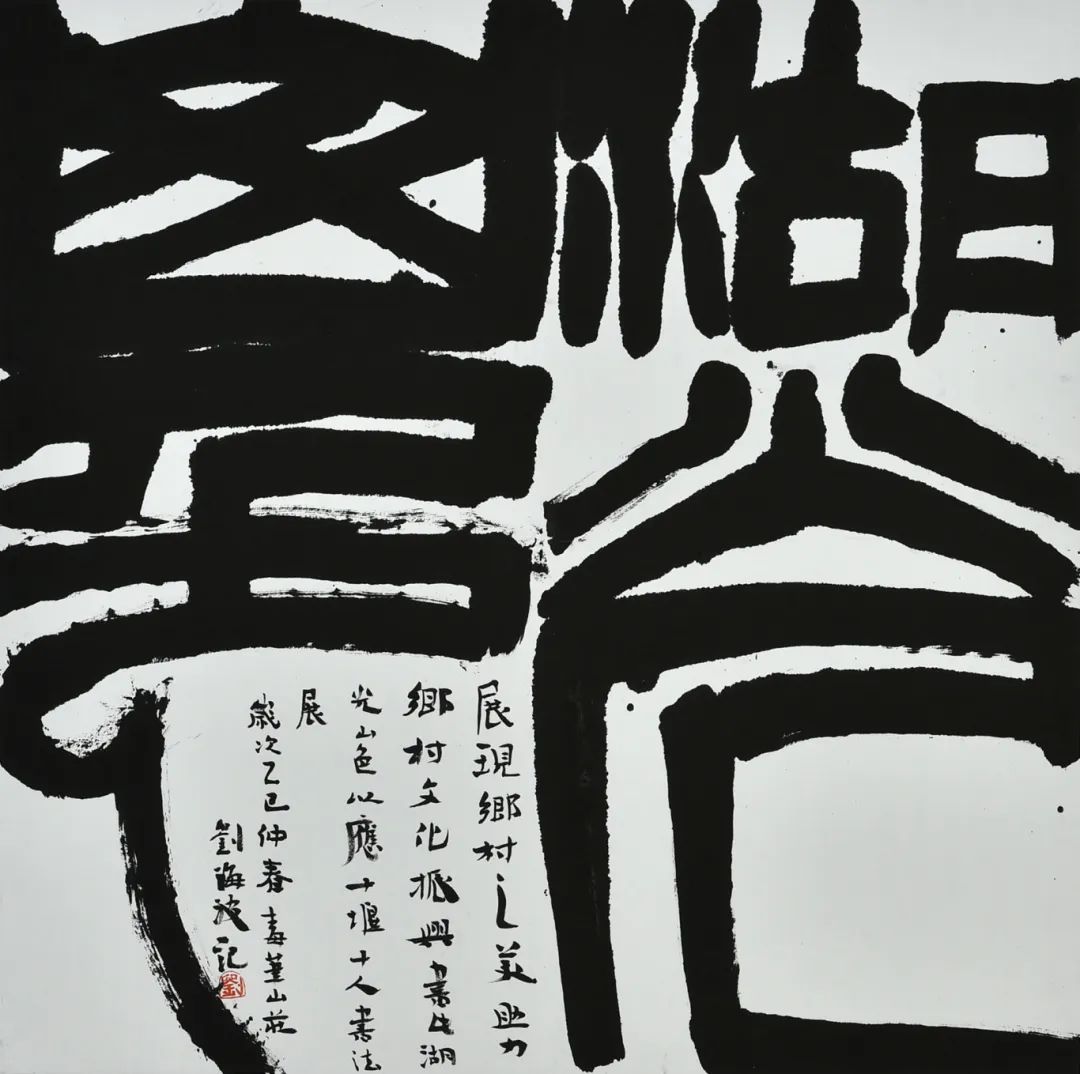 湖光
山色
展現鄉村之美助力
鄉村文化振興書此湖
光山色以應十堰十人書法
展
歲次乙巳仲春山莊
劉海波記
劉